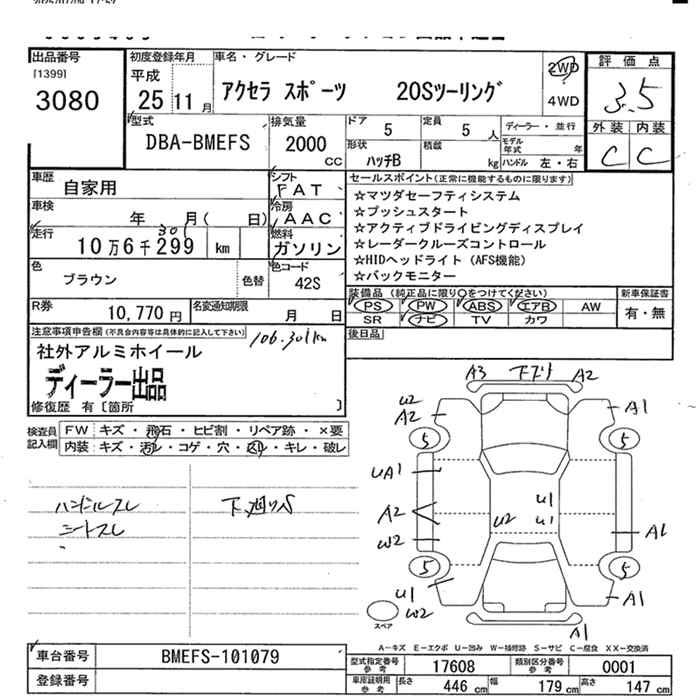 2025/07/09 17:52
出品番号
[1399]
3080
初度登録年月
平成
25 11 月
車名・グレード
アクセラ スポーツ 20Sツーリング
2WD
4WD
評価点
3.5
外装 内装
C C
型式
DBA-BMEFS
排気量
2000
cc
ドア 5
定員 5 人
ディーラー・並行
形状
ハッチB
積載
kg
モデル年式 年
ハンドル 左・右
車歴
自家用
シフト
FAT
車検
年 月( 日)
冷房
AAC
走行
301
10 万 6 千 299 km
燃料
ガソリン
色
ブラウン
色替
色コード
42S
R券
10,770 円
名変通知期限
月 日
セールスポイント(正常に機能するものに限ります)
☆マツダセーフティシステム
☆プッシュスタート
☆アクティブドライビングディスプレイ
☆レーダークルーズコントロール
☆HIDヘッドライト(AFS機能)
☆バックモニター
装備品(純正品に限り○をつけてください)
PS PW ABS エアB AW
SR ナビ TV カワ
新車保証書
有・無
後日品
注意事項申告欄(不具合内容等は具体的に記入して下さい)
106.301km
社外アルミホイール
ディーラー出品
修復歴 有〔箇所 〕
検査員
記入欄
FW キズ・飛石・ヒビ割・リペア跡・×要
内装: キズ・汚レ・コゲ・穴・凹レ・キレ・破レ
ハンドルスレ
シートスレ
下廻りS
A3 下ズリ A2
W2
A2
A1
5 5
UA1
A2
W2
U1
U2 U1
A1
5 5
U1
W2
A1
スペア
A1
A-キズ E-エクボ U-凹み W-補修跡 S-サビ C-腐食 XX-交換済
車台番号
BMEFS-101079
登録番号
型式指定番号
参考
17608
類別区分番号
参考
0001
車庫証明用
参考
長さ 446 cm
幅 179 cm
高さ 147 cm